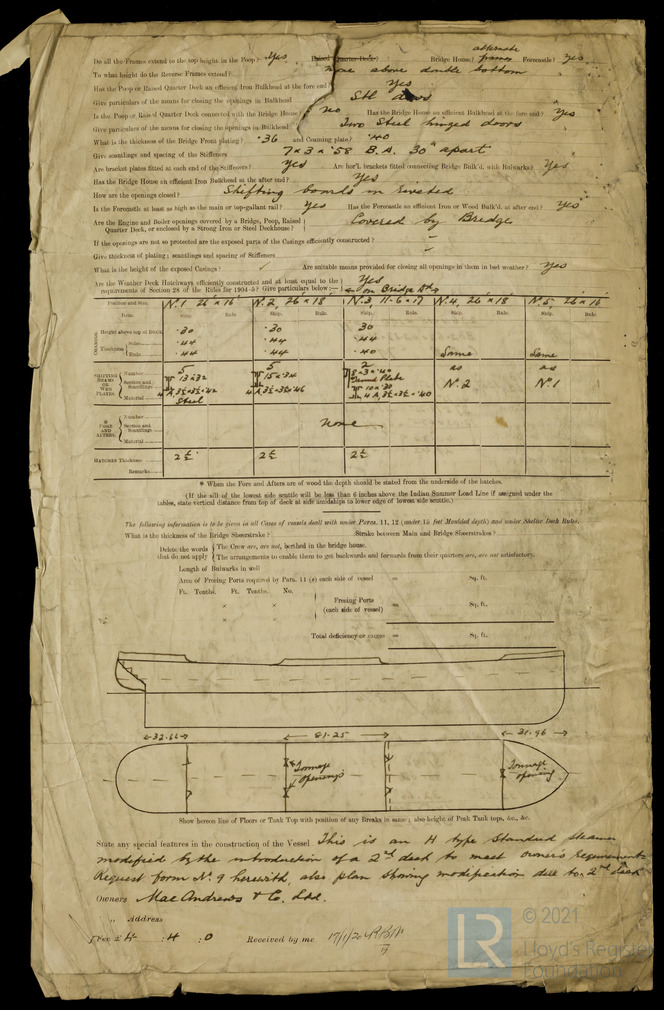 Do all the Frames extend to the top height in the Poop? Yes Raised Quarter Deck? Bridge House? alternate frames Forecastle? Yes
To what height do the Reverse Frames extend? none above double bottom
Has the Poop or Raised Quarter Deck an efficient Iron Bulkhead at the fore end? Yes
Give particulars of the means for closing the openings in Bulkhead Stl doors
Is the Poop or Raised Quarter Deck connected with the Bridge House? no Has the Bridge House an efficient Bulkhead at the fore end? Yes
Give particulars of the means for closing the openings in Bulkhead Two Steel hinged doors
What is the thickness of the Bridge Front plating? .36 and Coaming plate? .40
Give scantlings and spacing of the Stiffeners 7 x 3 x .58 B.A. 30" apart
Are bracket plates fitted at each end of the Stiffeners? Yes Are hor'l. brackets fitted connecting Bridge Bulk'd. with Bulwarks? Yes
Has the Bridge House an efficient Iron Bulkhead at the after end? Yes
How are the openings closed? Shifting boards in
Is the Forecastle at least as high as the main or top-gallant rail? Yes Has the Forecastle an efficient Iron or Wood Bulk'd. at after end? Yes
Are the Engine and Boiler openings covered by a Bridge, Poop, Raised Quarter Deck, or enclosed by a Strong Iron or Steel Deckhouse? Covered by Bridge
If the openings are not so protected are the exposed parts of the Casings efficiently constructed? —
Give thickness of plating; scantlings and spacing of Stiffeners —
What is the height of the exposed Casings? Are suitable means provided for closing all openings in them in bad weather? Yes
Are the Weather Deck Hatchways efficiently constructed and at least equal to the requirements of Section 28 of the Rules for 1904-5? Give particulars below:— Yes
on Bridge Dk
Position and Size. No. 1 26 x 16 No. 2, 26 x 18 No. 3, 11-6 x 17 No. 4, 26 x 18 No. 5, 26 x 16
Item. Ship. Rule. Ship. Rule. Ship. Rule. Ship. Rule. Ship. Rule.
COAMINGS Height above top of Deck .30 .30 30
Thickness Sides .44 .44 .44
Ends .44 .44 .40 Same Same
SHIFTING BEAMS OR WEB PLATES Number 5 5 2 as as
Section and Scantlings No. 2 No. 1
Material Steel
FORE AND AFTERS Number
Section and Scantlings none
Material
HATCHES Thickness 2½ 2½ 2½
Remarks
* When the Fore and Afters are of wood the depth should be stated from the underside of the hatches.
(If the sill of the lowest side scuttle will be less than 6 inches above the Indian Summer Load Line if assigned under the tables, state vertical distance from top of deck at side amidships to lower edge of lowest side scuttle.)
The following information is to be given in all Cases of vessels dealt with under Paras. 11, 12 (under 15 feet Moulded depth) and under Shelter Deck Rules.
What is the thickness of the Bridge Sheerstrake? Strake between Main and Bridge Sheerstrakes?
Delete the words that do not apply { The Crew are, are not, berthed in the bridge house.
The arrangements to enable them to get backwards and forwards from their quarters are, are not satisfactory.
Length of Bulwarks in well
Area of Freeing Ports required by Para. 11 (e) each side of vessel = Sq. ft.
Ft. Tenths. Ft. Tenths. No.
x x Freeing Ports (each side of vessel) = Sq. ft.
x x
Total deficiency or excess = Sq. ft.
32.66 81.25 31.96
Tonnage openings
Tonnage opening
Show hereon line of Floors or Tank Top with position of any Breaks in same; also height of Peak Tank tops, &c., &c.
State any special features in the construction of the Vessel This is an H type Standard steamer
modified by the introduction of a 2nd deck to meet owner's requirements
Request form No. 9 herewith, also plan showing modification due to 2nd deck
Owners MacAndrews & Co. Ltd.
„ Address
Fee £ 4 : 4 : 0 Received by me 17/1/20
LR
© 2021
Lloyd's Register
Foundation